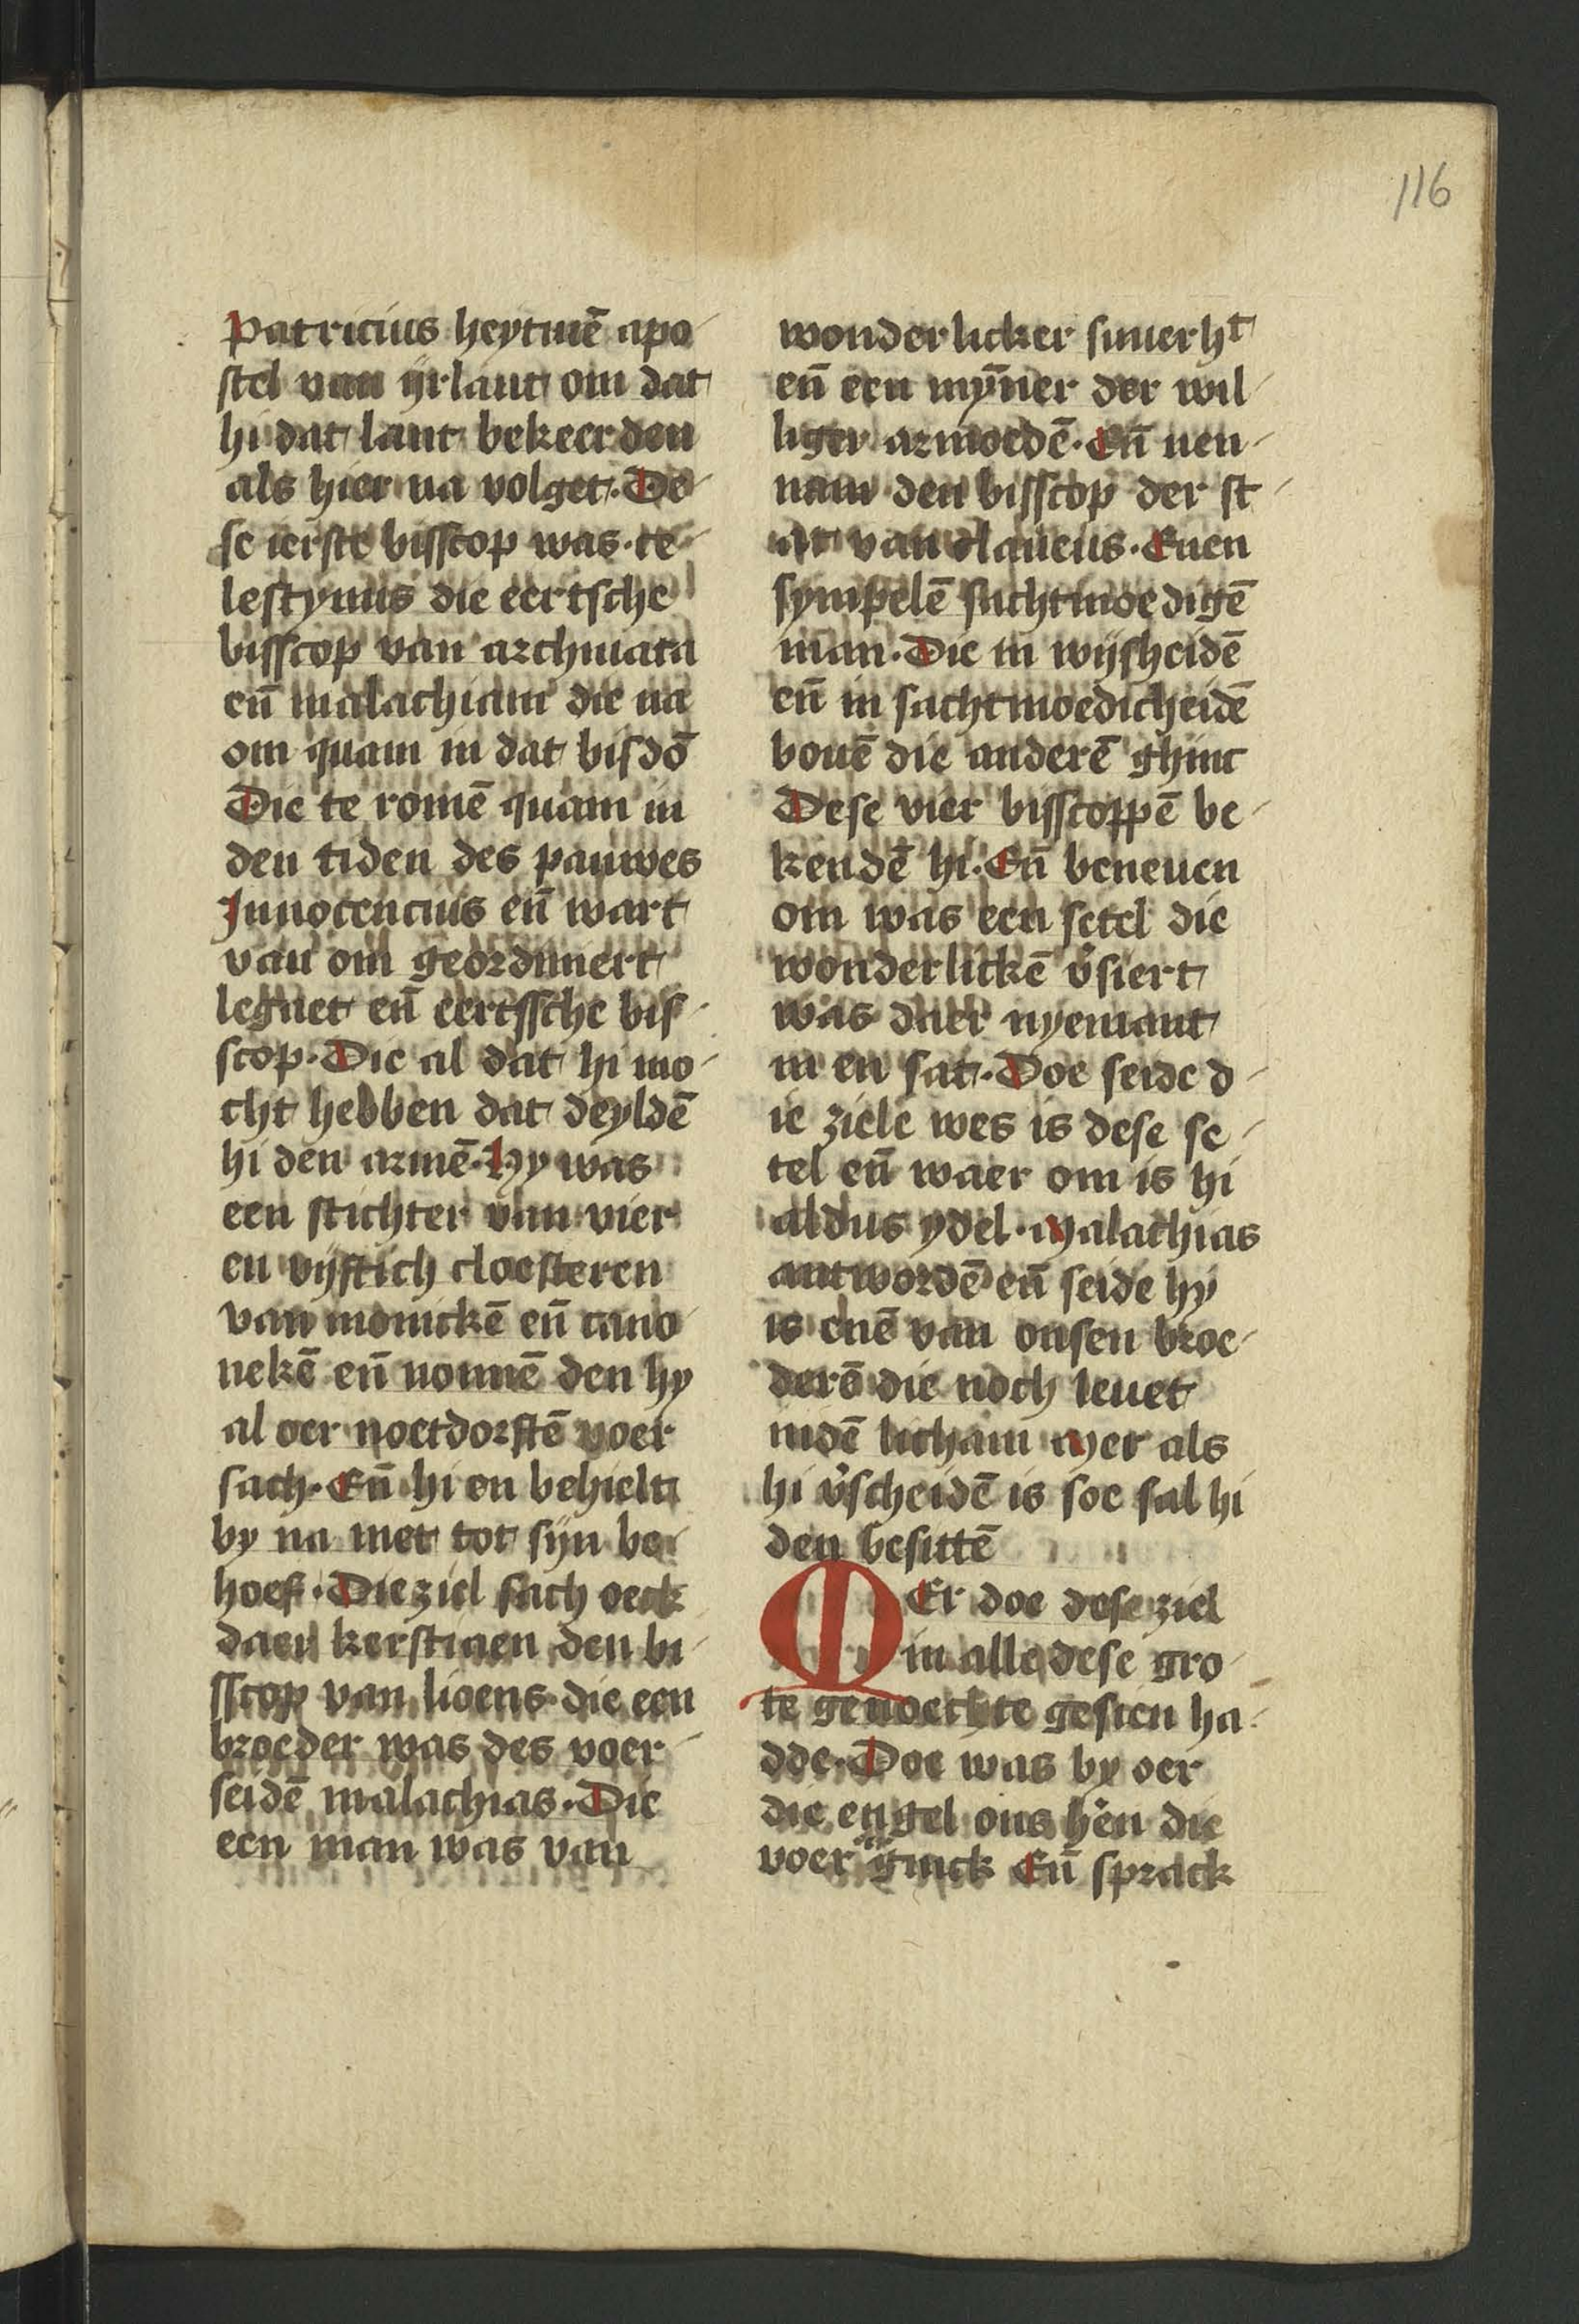 116
Patricius heytmē apo-
stel van ijrlant om dat
hi dat lant bekeerden
als hier na volget. De-
se ierste bisscop was. te-
lestynus die eertsche
bisscop van archmata
en̄ malachiam die na
om quam in dat bisdō
Die te romē quam in
den tiden des pauwes
Innocencius en̄ wart
van om geordiniert
legaet en̄ eertssche bis-
scop. Die al dat hi mo-
cht hebben dat deyldē
hi den armē. Hy was
een stichter van vier
en vijftich cloesteren
van monickē en̄ cano
nekē en̄ nonnē den hy
al oer noetdorftē voer
sach. En̄ hi en behielt
by na niet tot sijn be-
hoef. Die ziel sach oeck
daer kerstiaen den bi-
sscop van lioens die een
broeder was des voer-
seidē malachias. Die
een man was van
wonderlicker suuerhᵗ
en̄ een mȳner der wil-
liger armoedē. En̄ nen-
nam den bisscop der st-
at van claneus. Enen
sympelē sachtmoedigē
man. Die in wijsheidē
en̄ in sachtmoedicheidē
bouē die anderē ghinc
Dese vier bisscoppē be-
kendē hi. En̄ beneuen
om was een setel die
wonderlickē v̓siert
was daer nyemant
in en sat. Doe seide d-
ie ziele wes is dese se-
tel en̄ waer om is hi
aldus ydel. Malachias
antwordē en̄ seide hy
is enē van onsen broe-
derē die noch leuet
indē licham Mer als
hi v̓scheidē is soe sal hi
den besittē
MEr doe dese ziel
in alle dese gro-
te genoechte gesien ha-
dde. Doe was by oer
die engel ons hēn die
voer ginck En̄ sprack